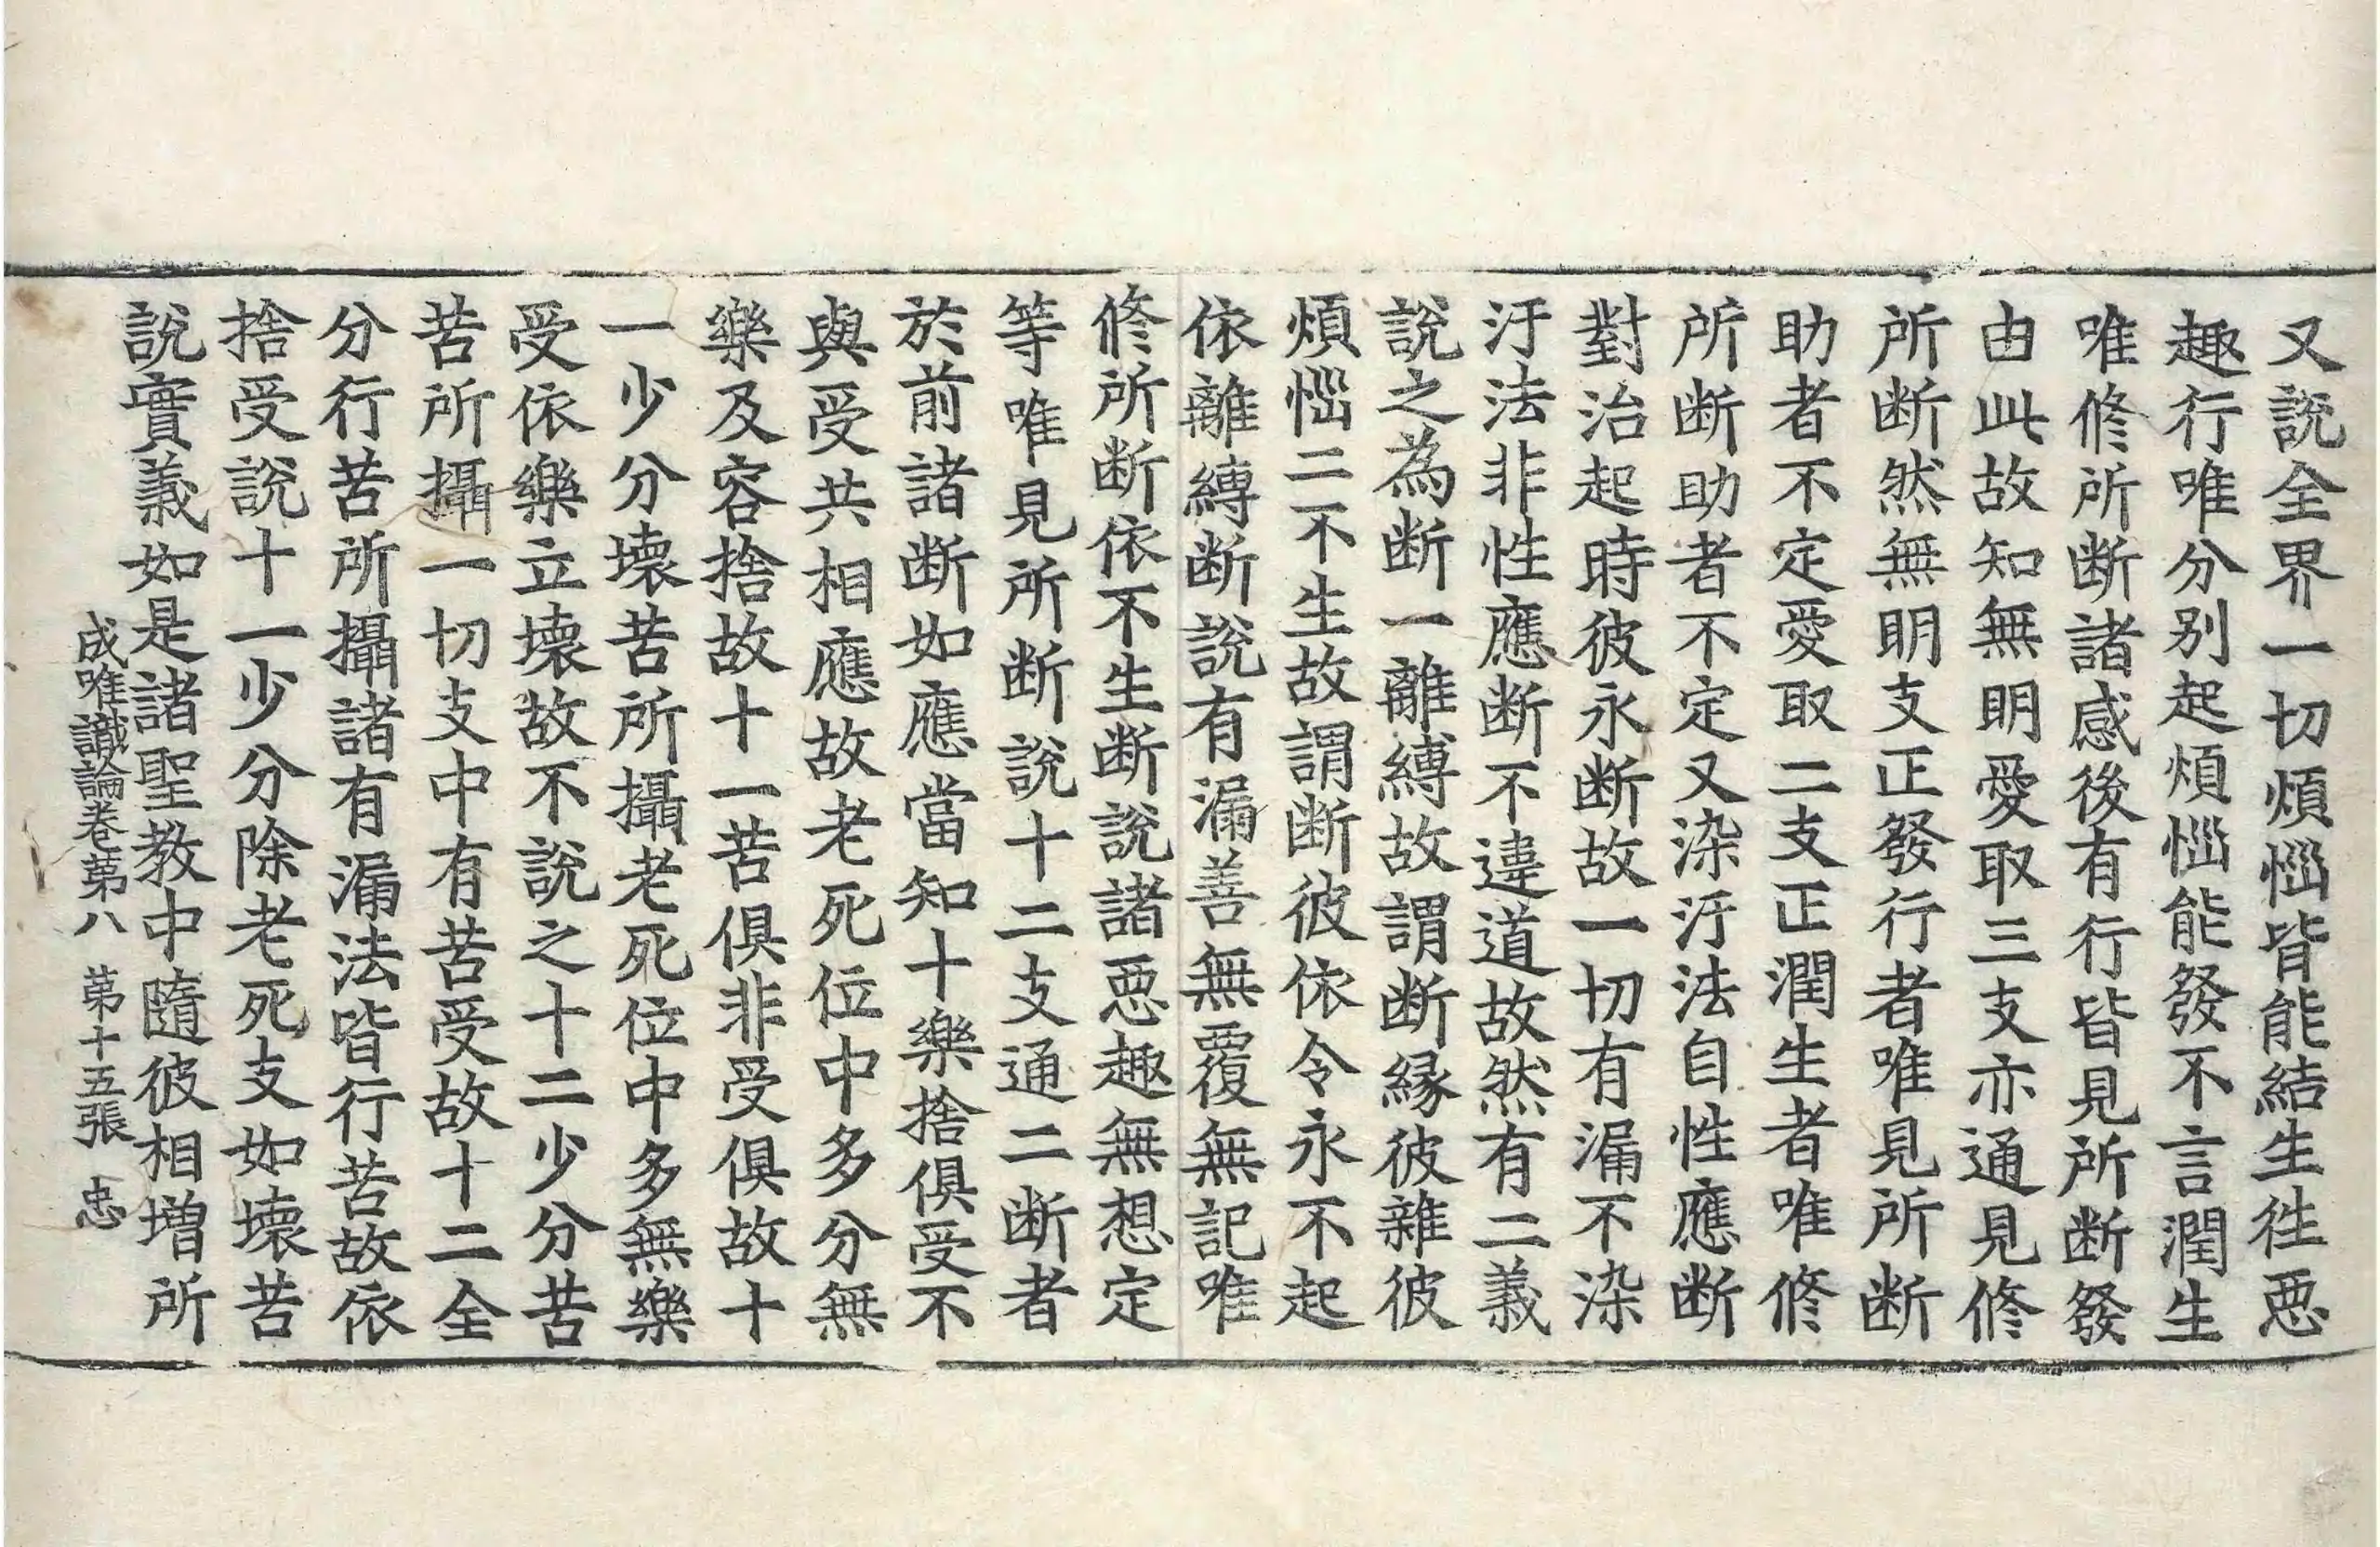 又說全界一切煩惱皆能結生徃惡
趣行唯分别起煩惱能發不言潤生
唯修所断諸感後有行皆見所断發
由此故知無明愛取三支亦通見修
所断然無明支正發行者唯見所断
助者不定愛取二支正潤生者唯修
所断助者不定又染汙法自性應断
對治起時彼永断故一切有漏不染
汙法非性應断不違道故然有二義
說之為断一離縛故謂断緣彼雜彼
煩惱二不生故謂断彼依令永不起
依離縛断說有漏善無覆無記唯
修所断依不生断說諸惡趣無想定
等唯見所断說十二支通二断者
於前諸断如應當知十樂捨俱受不
與受共相應故老死位中多分無
樂及容捨故十一苦俱非受俱故十
一少分壞苦所攝老死位中多無樂
受依樂立壞故不說之十二少分苦
苦所攝一切支中有苦受故十二全
分行苦所攝諸有漏法皆行苦故依
捨受說十一少分除老死支如壞苦
說實義如是諸聖教中隨彼相增所
成唯識論卷第八 第十五張 忠